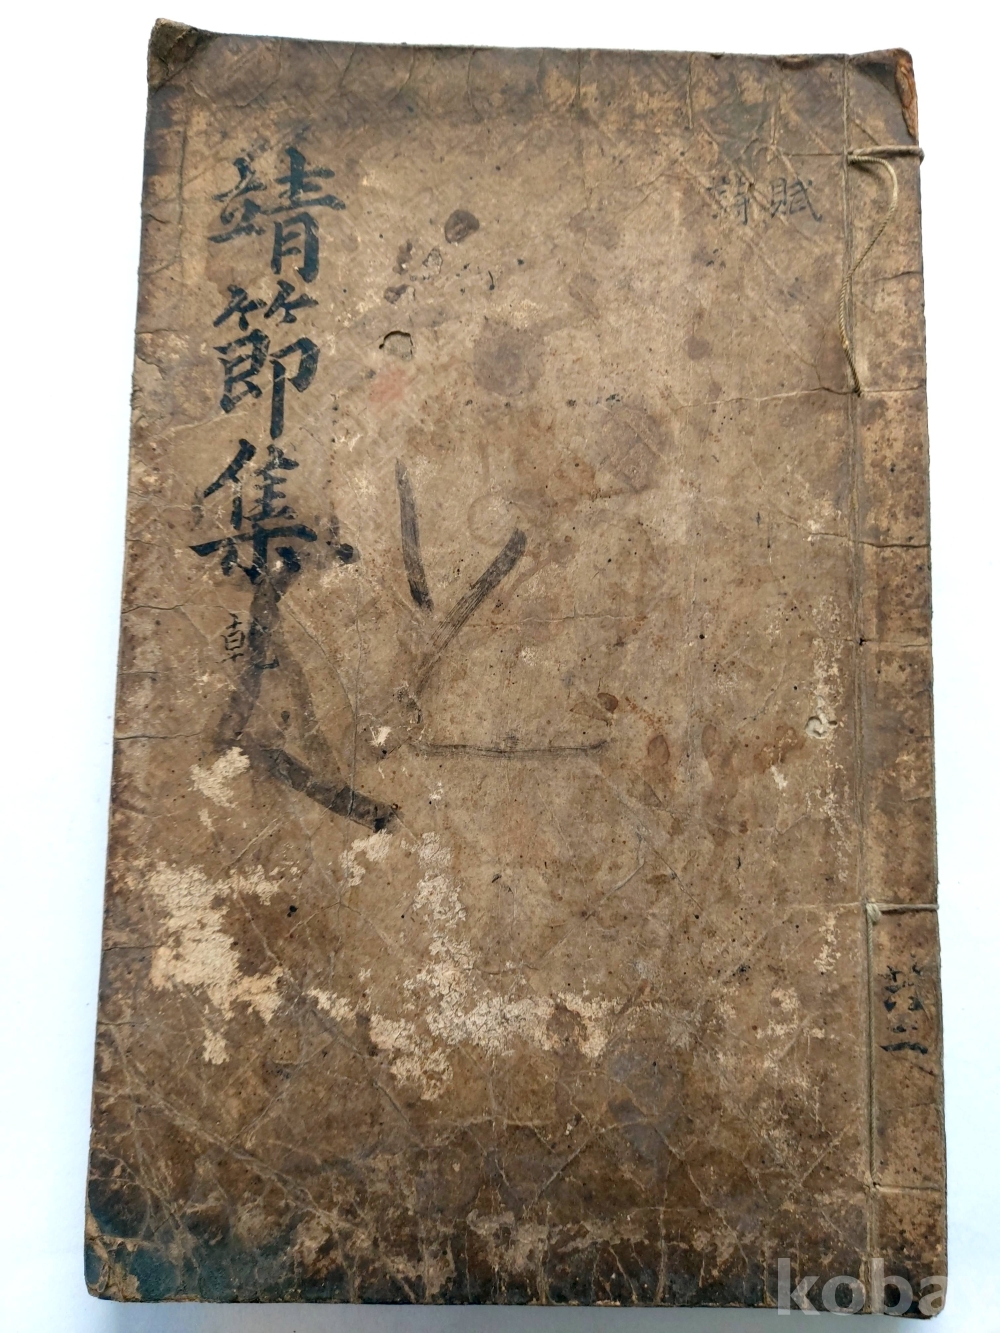 賦
詩
靖節集 乾
koba